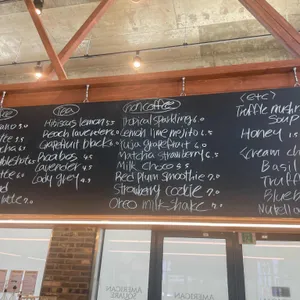 Tea
Hibiscus lemon 5.5
Peach lavender 6.0
Grapefruit black 5.0
Rooibos 4.5
Lavender 4.5
Lady grey 4.5
noncoffee
Tropical sparkling 6.0
Lemon lime mojito 6.5
Yuja grapefruit 6.0
Matcha strawberry 6.5
Milk choco 5.5
Red Plum smoothie 7.0
Strawberry cookie 7.0
Oreo milk-shake 7.0
(etc)
Truffle mush
Soup
Honey
cream ch
Basil
Truff
Blueb
Nutella
AMERICAN
SQUARE
AMERICAN
SQUARE